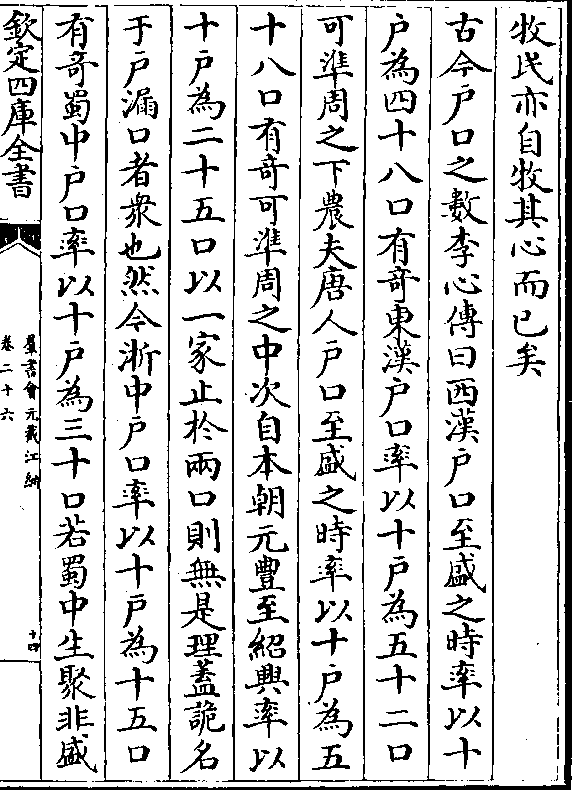 牧民亦自牧其心而已矣
古今户口之數李心傳曰西漢户口至盛之時率以十
户為四十八口有奇東漢户口率以十户為五十二口
可準周之下農夫唐人户口至盛之時率以十户為五
十八口有奇可準周之中次自本朝元豐至紹興率以
十户為二十五口以一家止於兩口則無是理蓋詭名
于户漏口者衆也然今浙中户口率以十户為十五口
有奇蜀中户口率以十户為三十口若蜀中生聚非盛
欽定四庫全書
羣書會元截江網
卷二十六
十四